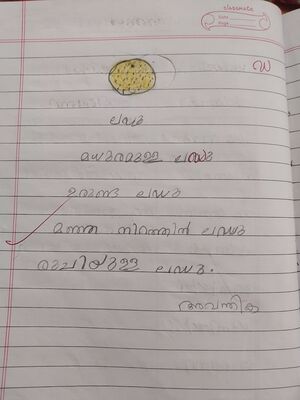 classmate
Date
Page
ഡ
ലഡു
മധുരമുള്ള ലഡു
ഉരുണ്ട ലഡു
മഞ്ഞ നിറത്തിൻ ലഡു
രുചിയുള്ള ലഡു.
അവന്തിക